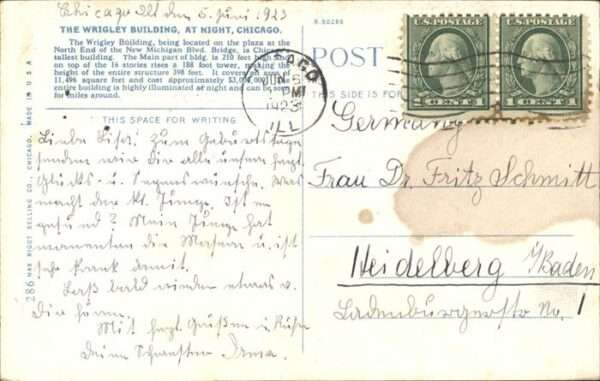 Chicago Ill den 5. Juni 1923
THE WRIGLEY BUILDING, AT NIGHT, CHICAGO.
The Wrigley Building, being located on the plaza at the
North End of the New Michigan Blvd. Bridge, is Chicago
tallest building. The Main part of bldg. is 210 feet high and
on top of the 16 stories rises a 188 foot tower, making the
height of the entire structure 398 feet. It covers an area of
11,496 square feet and cost approximately $3,000,000
entire building is highly illuminated at night and can be seen
for miles around.
THIS SPACE FOR WRITING
Liebe Lisel! Zum Geburtstage
senden wir Dir alle unsere herzl.
Glücks- u. Segenswünsche. Was
macht der kl. Junge. Ist er
gesund? Mein Junge hat
momentan die Masern u. ist
sehr krank damit.
Lass bald wieder etwas v.
Dir hören.
Mit herzl Grüßen u. Küssen
Deine Schwester Irma.
286 MAX RIGOT SELLING CO., CHICAGO. MADE IN U.S.A
R-92286
POST
THIS SIDE IS FOR
CHICAGO
JUN 5
PM
1923
ILL
U.S. POSTAGE
1 CENT 1
U.S. POSTAGE
1 CENT 1
Germany
Frau Dr. Fritz Schmitt
Heidelberg i/Baden
Ladenburgerstr No. 1